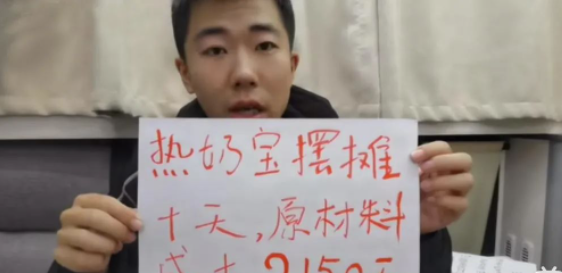 热奶宝摆摊
十天,原材料
成本2150元